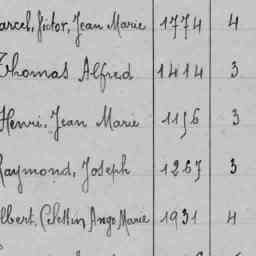 arcel, Victor, Jean Marie 1774 4
Thomas Alfred 1414 3
Henri, Jean Marie 1156 3
Raymond, Joseph 1267 3
lbert, Célestin, Ange Marie 1931 4